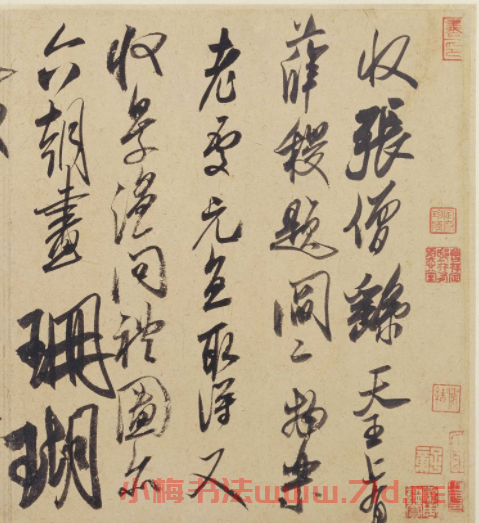 收張僧繇天王上有
薛稷題閻二物樂
老處元直取得又
收景溫問禮圖亦
六朝畫珊瑚
小梅书法www.7ld.net